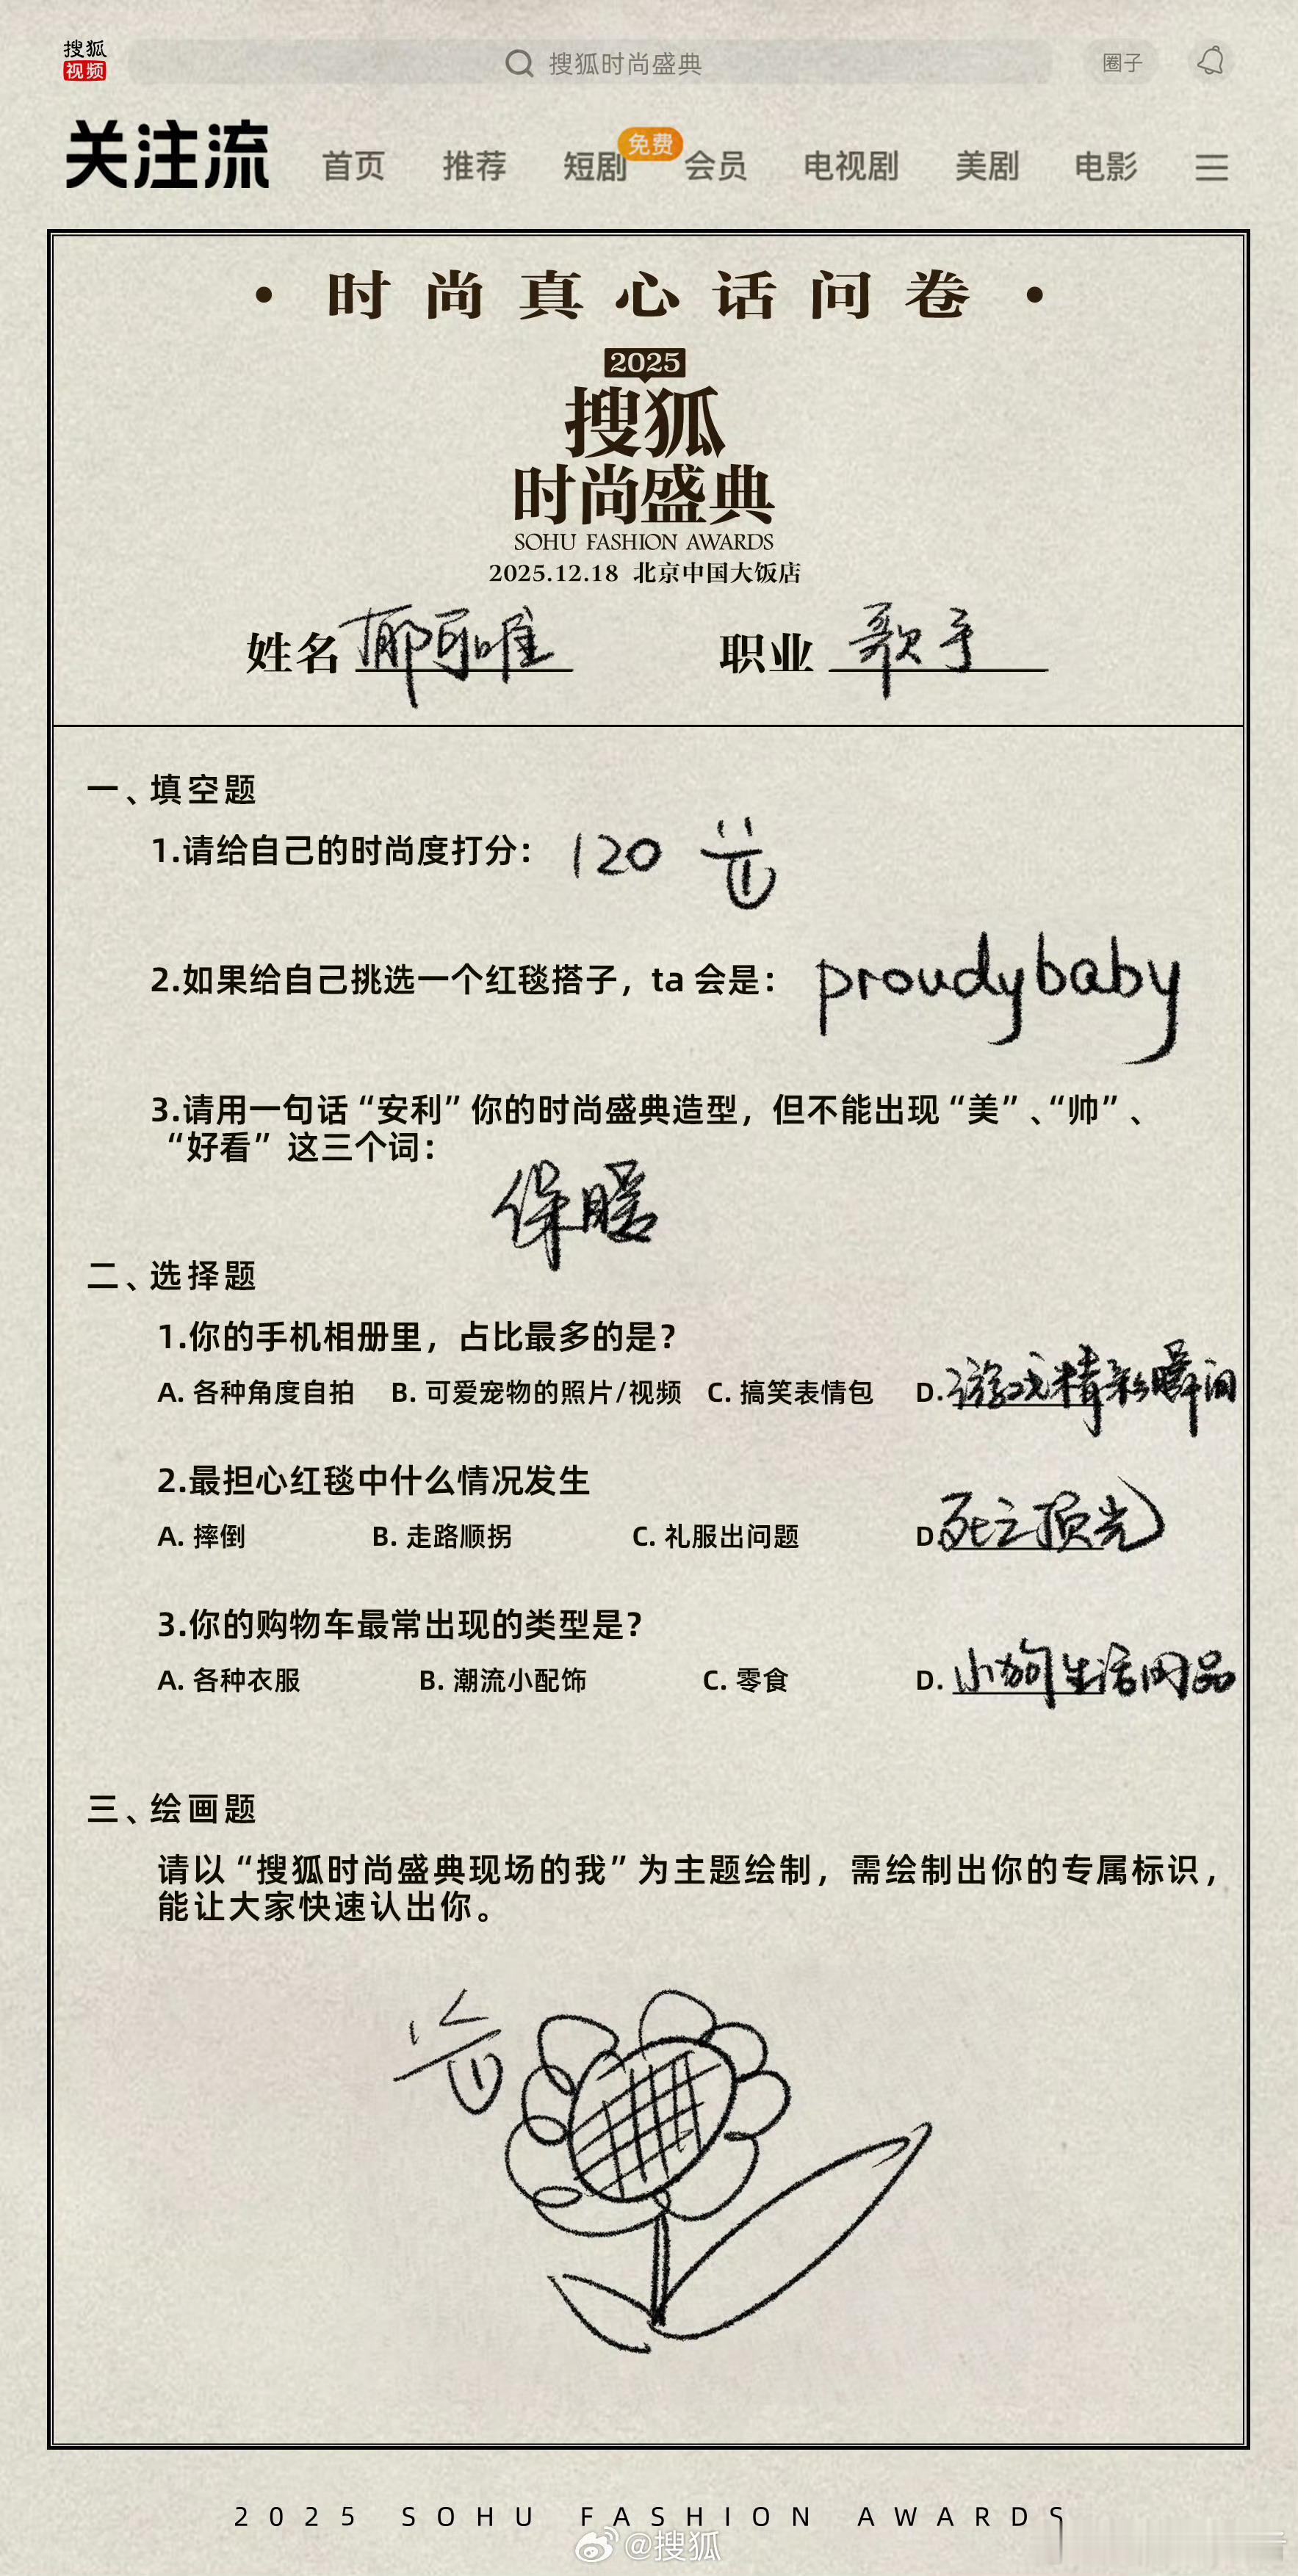 搜狐
视频
搜狐时尚盛典
圈子
关注流 首页 推荐 短剧 免费 会员 电视剧 美剧 电影
·时尚真心话问卷·
2025
搜狐
时尚盛典
SOHU FASHION AWARDS
2025.12.18 北京中国大饭店
姓名 郁可唯 职业 歌手
一、填空题
1.请给自己的时尚度打分： 120
2.如果给自己挑选一个红毯搭子，ta 会是： proudybaby
3.请用一句话“安利”你的时尚盛典造型，但不能出现“美”、“帅”、
“好看” 这三个词：
保暖
二、选择题
1.你的手机相册里，占比最多的是？
A. 各种角度自拍 B. 可爱宠物的照片/视频 C. 搞笑表情包 D. 游戏精彩瞬间
2.最担心红毯中什么情况发生
A. 摔倒 B. 走路顺拐 C. 礼服出问题 D. 死亡顶光
3.你的购物车最常出现的类型是？
A. 各种衣服 B. 潮流小配饰 C. 零食 D. 小狗生活用品
三、绘画题
请以“搜狐时尚盛典现场的我”为主题绘制，需绘制出你的专属标识，
能让大家快速认出你。
2025 SOHU FASHION AWARDS
@搜狐